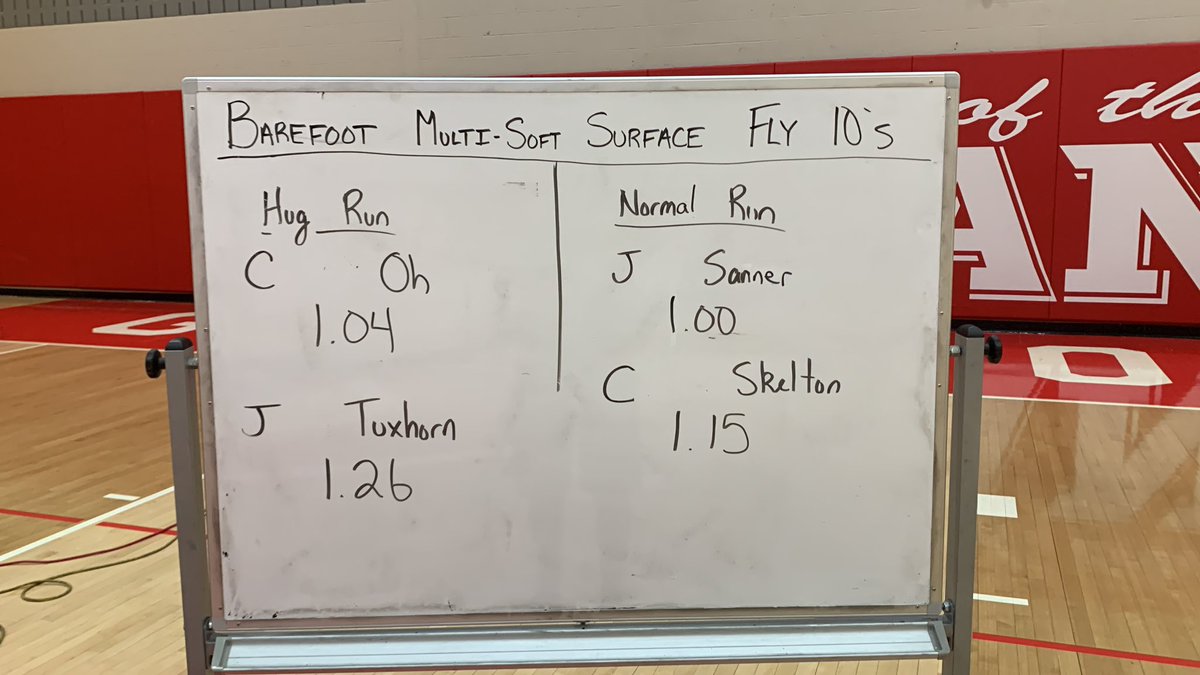 BAREFOOT MULTI-SOFT SURFACE FLY 10's
Hug Run
C Oh
1.04
J Tuxhorn
1.26
Normal Run
J Sanner
1.00
C Skelton
1.15
of th
AN
O